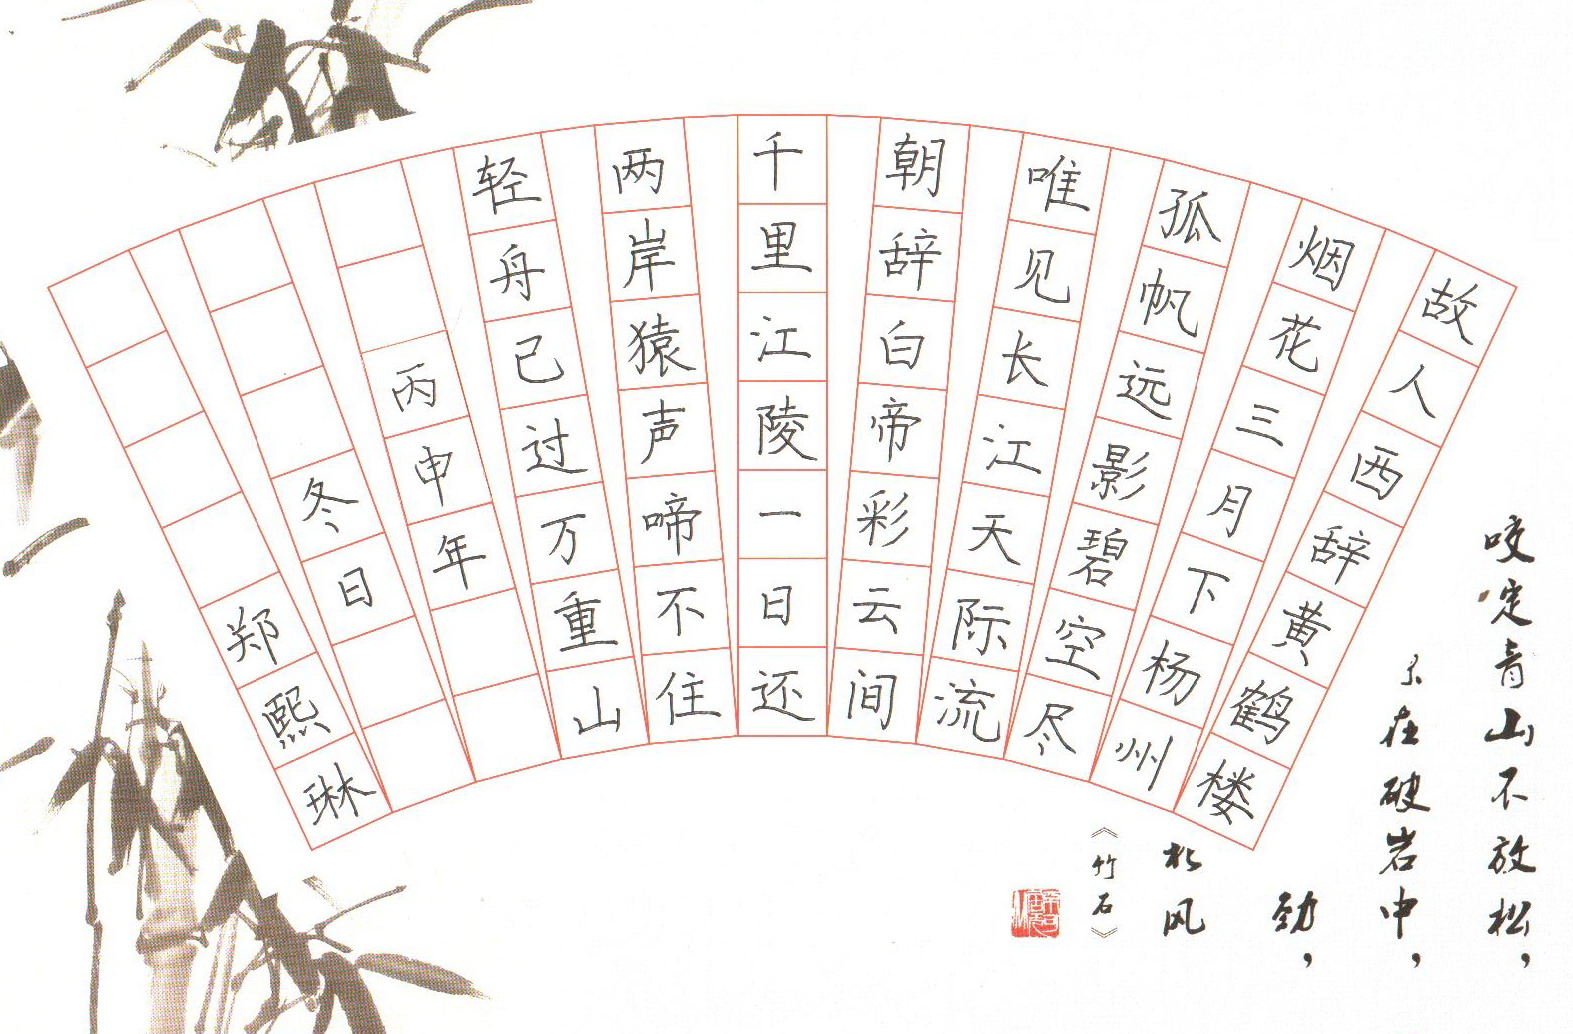 故人西辞黄鹤楼
烟花三月下杨州
孤帆远影碧空尽
唯见长江天际流
朝辞白帝彩云间
千里江陵一日还
两岸猿声啼不住
轻舟已过万重山
丙申年
冬日
郑熙琳
咬定青山不放松，
在破岩中，
劲，
风
《竹石》